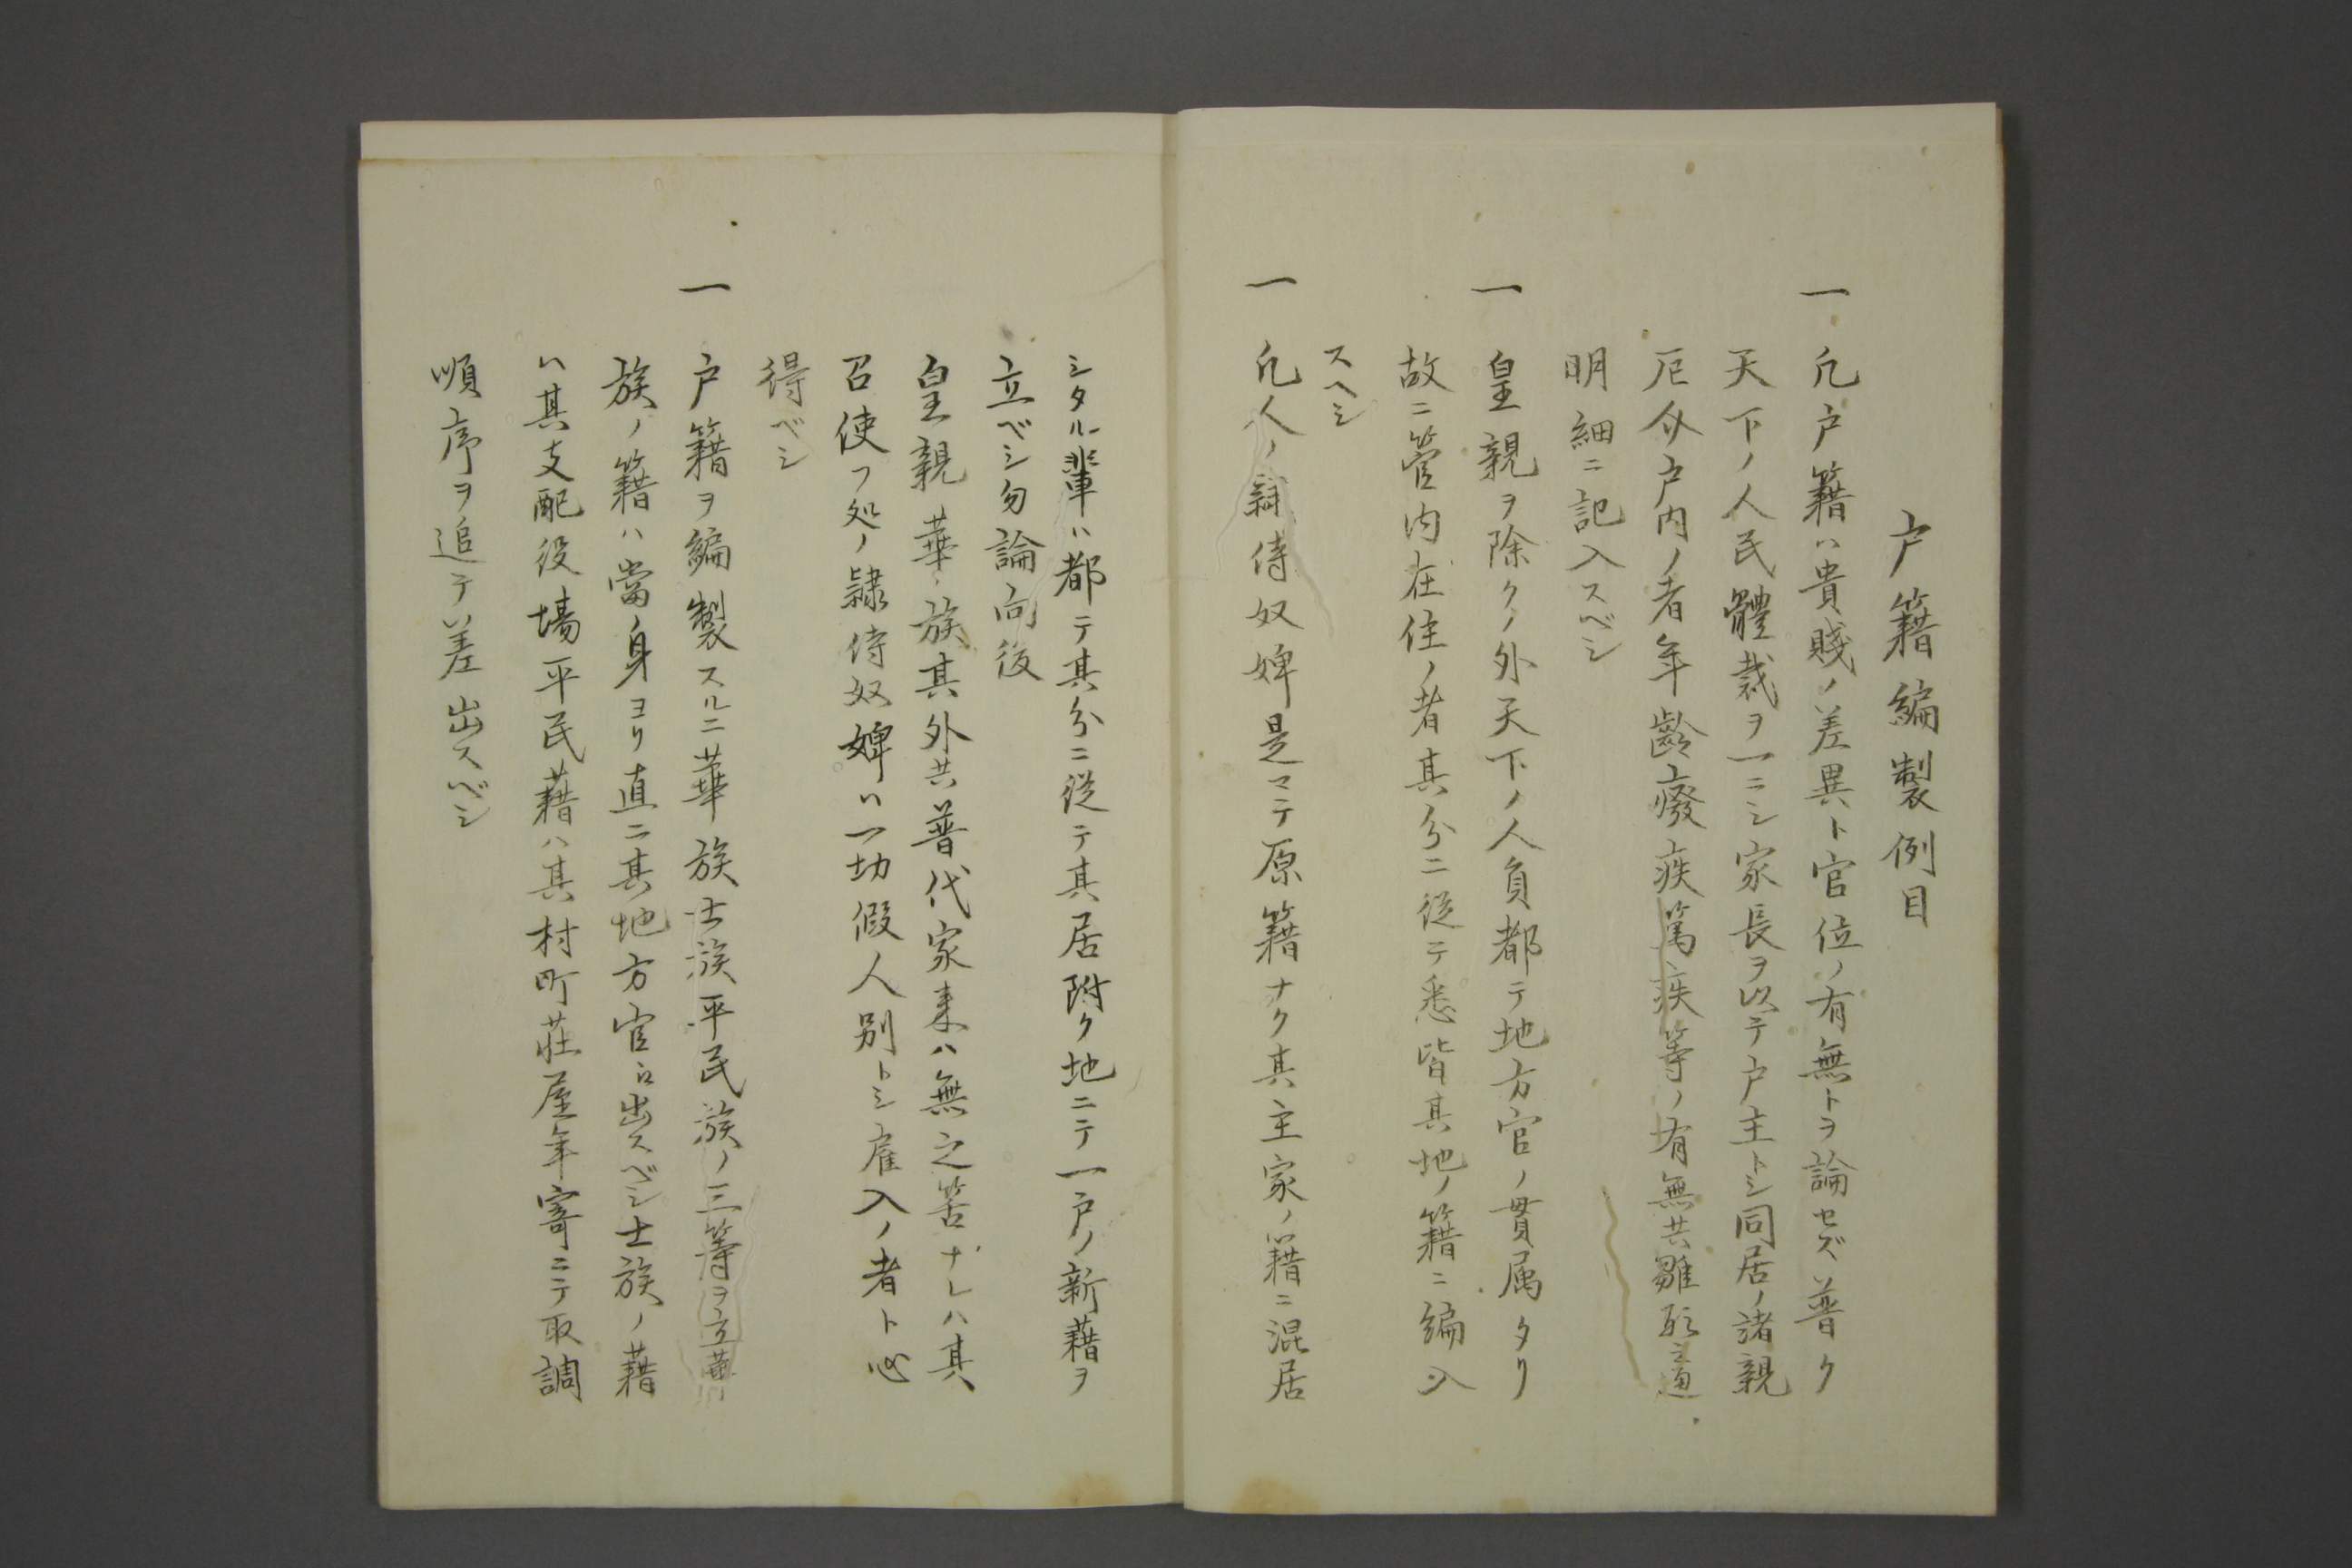 戸籍編製例目
一 凡戸籍ハ貴賤ノ差異ト官位ノ有無トヲ論セズ普ク
天下ノ人民體裁ヲ一ニシ家長ヲ以テ戸主トシ同居ノ諸親
厄介戸内ノ者年齢癈疾篤疾等ノ有無共雛形之通
明細ニ記入スベシ
一 皇親ヲ除クノ外天下ノ人員都テ地方官ノ貫属タリ
故ニ管内在住ノ者其分ニ従テ悉皆其地ノ籍ニ編入
スヘシ
一 凡人ノ隷侍奴婢是マテ原籍ナク其主家ノ籍ニ混居
シタル輩ハ都テ其分ニ従テ其居附ク地ニテ一戸ノ新藉ヲ
立ベシ勿論向後
皇親華族其外共普代家来ハ無之筈ナレハ其
召使フ処ノ隷侍奴婢ハ一切假人別トシ雇入ノ者ト心
得ベシ
一 戸籍ヲ編製スルニ華族士族平民族ノ三等ヲ立華
族ノ籍ハ當ノ身ヨリ直ニ其地方官ニ出スベシ士族ノ藉
ハ其支配役場平民藉ハ其村町荘屋年寄ニテ取調
順序ヲ追テ差出スベシ